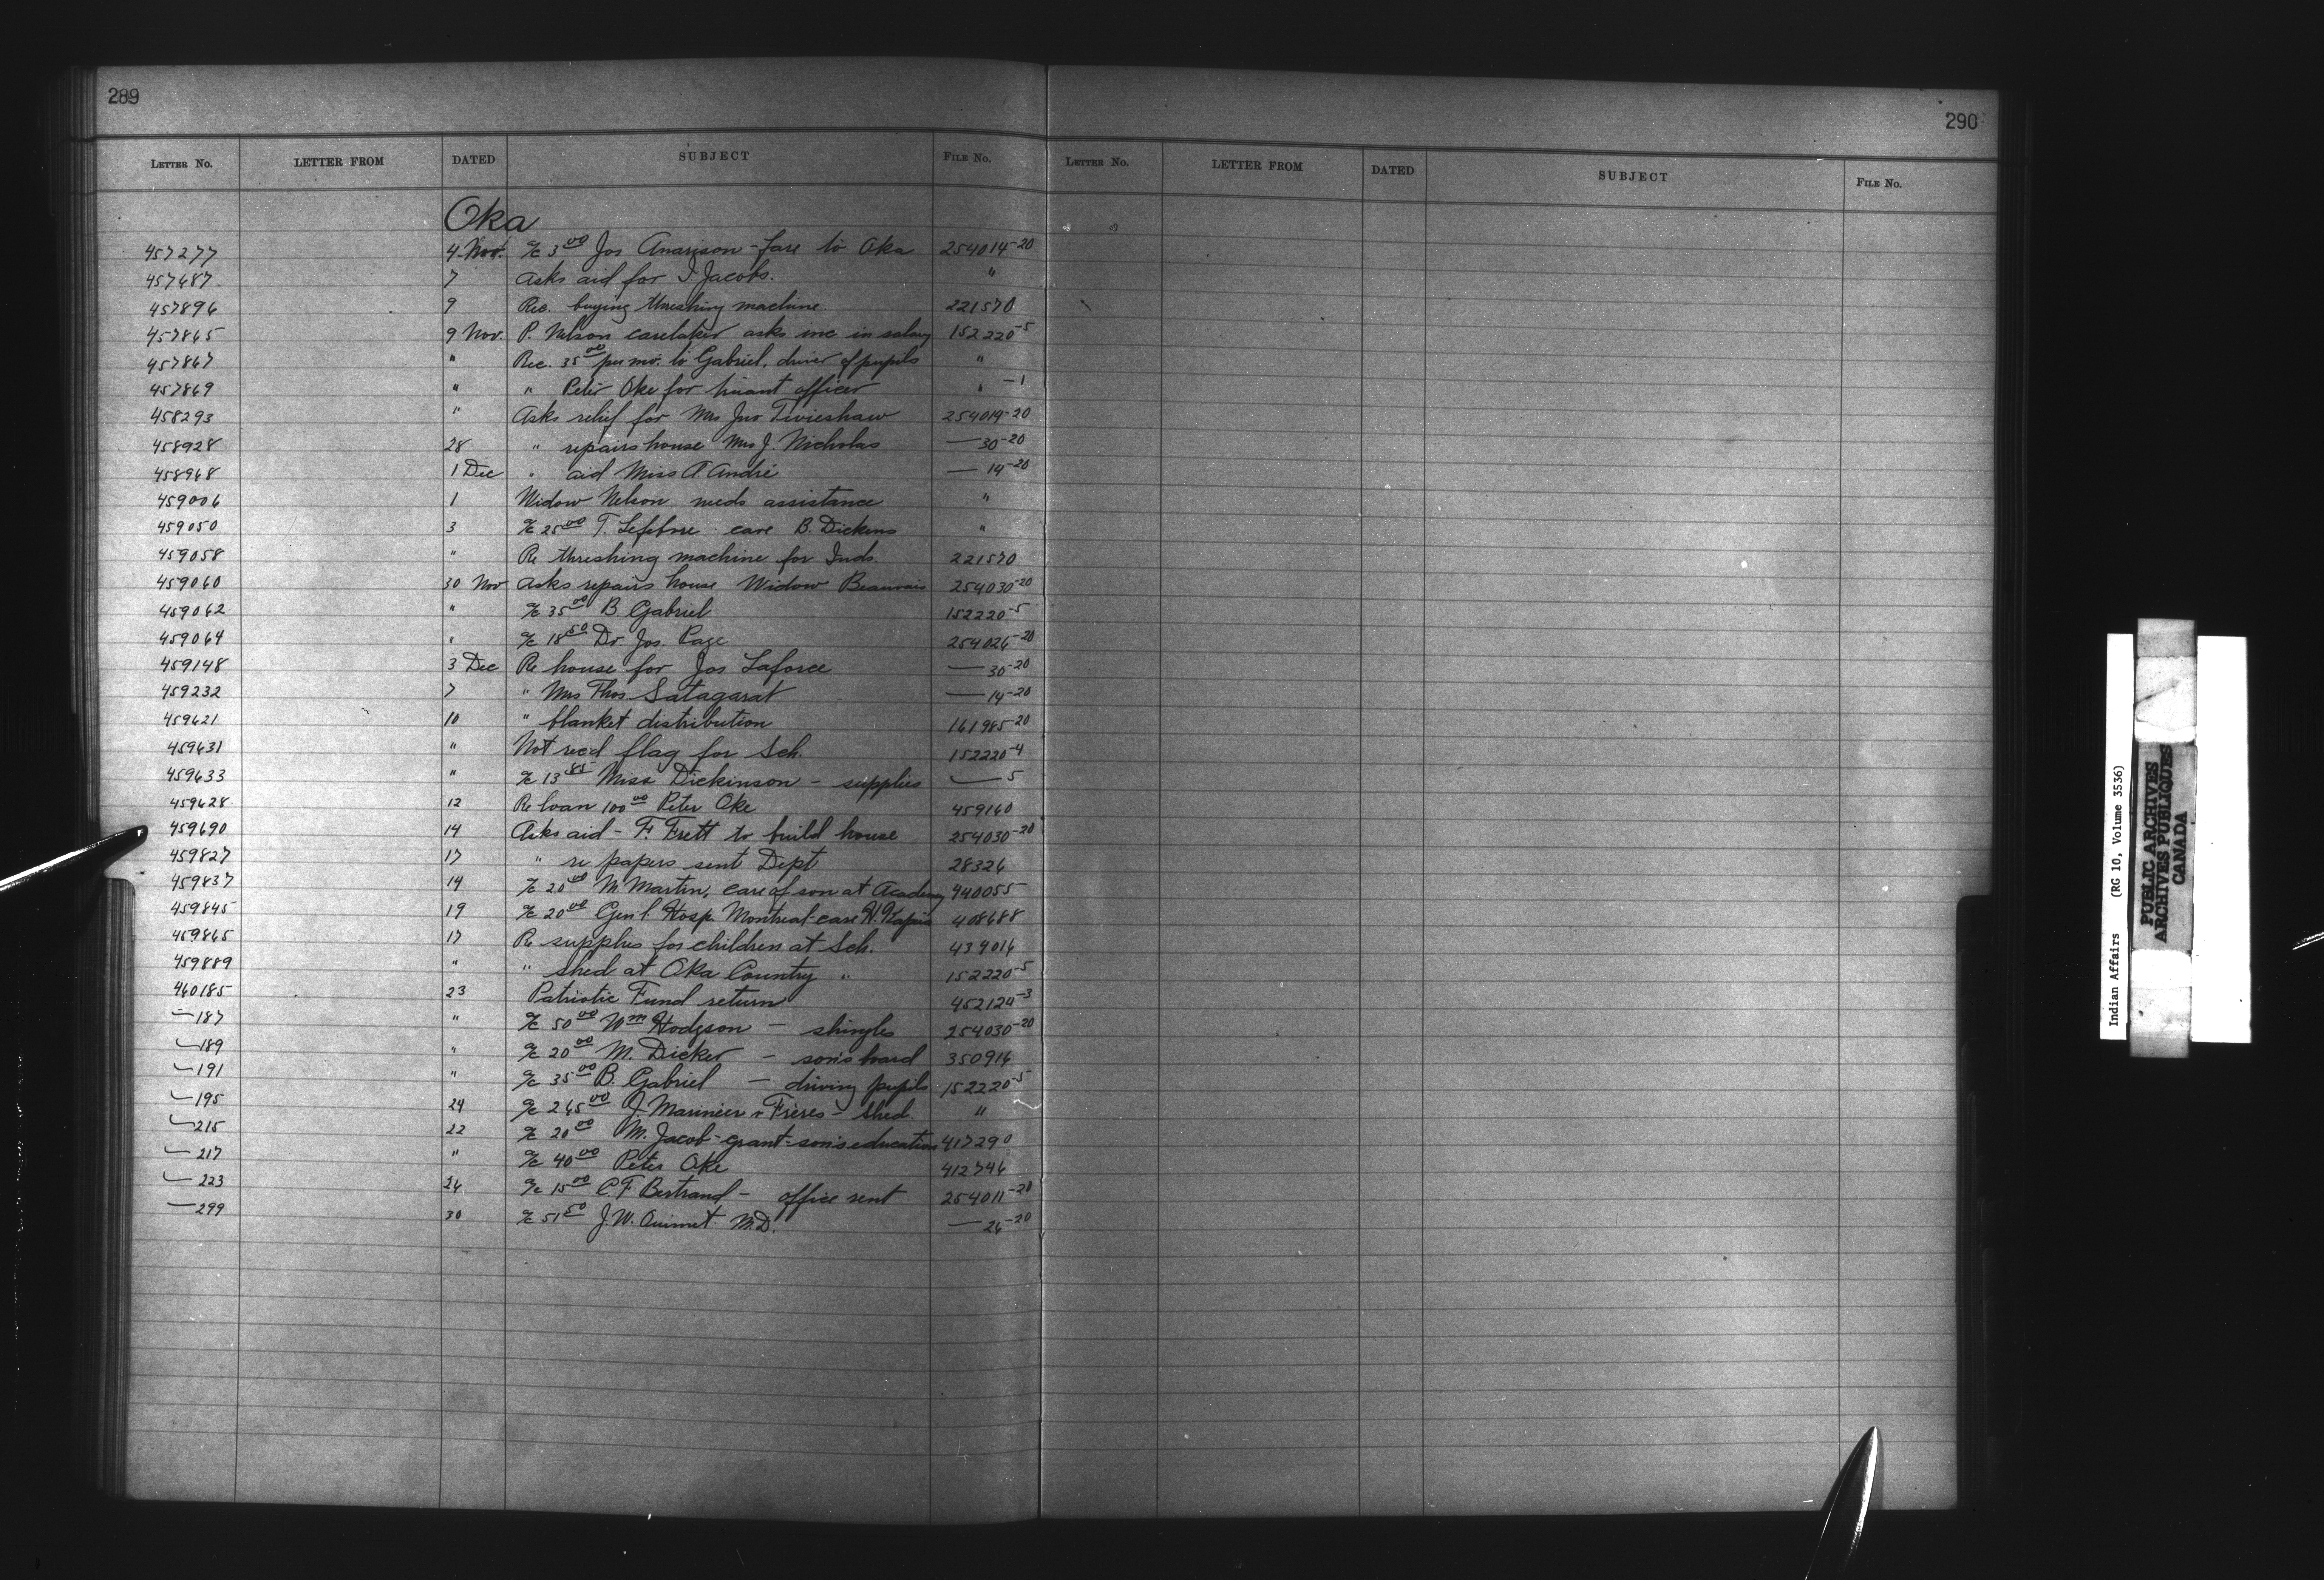 289
LETTER NO. LETTER FROM DATED SUBJECT FILE NO.
Oka
457277 4 Nov. a/c 3.00 Jos Anarison - fare to Oka 254014-20
457687 7 Asks aid for I. Jacobs. "
457896 9 Rec. buying threshing machine 221570
457865 9 Nov. P. Nelson caretaker asks inc in salary 152220-5
457867 " Rec. 35.00 per mo. to Gabriel, driver of pupils "
457869 " " Peter Oke for truant officer " -1
458293 " Asks relief for Mrs Jno Tivieshaw 254014-20
458928 28 " repairs house Mrs J. Nicholas — 30-20
458968 1 Dec " aid Miss A. André — 14-20
459006 1 Widow Nelson needs assistance "
459050 3 a/c 25.00 T. Lefebvre care B. Dickens "
459058 " Re threshing machine for Inds. 221570
459060 30 Nov Asks repairs house Widow Beauvais 254030-20
459062 " a/c 35.00 B Gabriel 152220-5
459064 " a/c 18.50 Dr. Jos. Page 254026-20
459148 3 Dec Re house for Jos Laforce — 30-20
459232 7 " Mrs Thos Satagarat — 14-20
459621 10 " blanket distribution 161985-20
459631 " Not rec'd flag for Sch. 152220-4
459633 " a/c 13.85 Miss Dickinson - supplies — 5
459628 12 Re loan 100.00 Peter Oke 459160
459690 14 Asks aid - F. Frett to build house 254030-20
459827 17 " re papers sent Dept 28326
459837 14 a/c 20.00 M. Martin, care of son at Academy 440055
459845 19 a/c 20.00 Gen'l. Hosp. Montreal - care 408688
459865 17 Re supplies for children at Sch. 439016
459889 " " shed at Oka Country " 152220-5
460185 23 Patriotic Fund return 452124-3
—187 " a/c 50.00 Wm Hodgson - shingles 254030-20
—189 " a/c 20.00 M. Dicker - son's board 350916
—191 " a/c 35.00 B. Gabriel - driving pupils 152220-5
—195 24 a/c 265.00 J. Marinier & Frères - shed. "
—215 22 a/c 20.00 M. Jacob - grant - son's education 417290
—217 " a/c 40.00 Peter Oke 412746
—223 26 a/c 15.00 C. F. Bertrand - office rent 254011-20
—299 30 a/c 51.50 J. W. Ouimet M.D. — 26-20
290
LETTER NO. LETTER FROM DATED SUBJECT FILE NO.
Indian Affairs (RG 10, Volume 3536)
PUBLIC ARCHIVES
ARCHIVES PUBLIQUES
CANADA